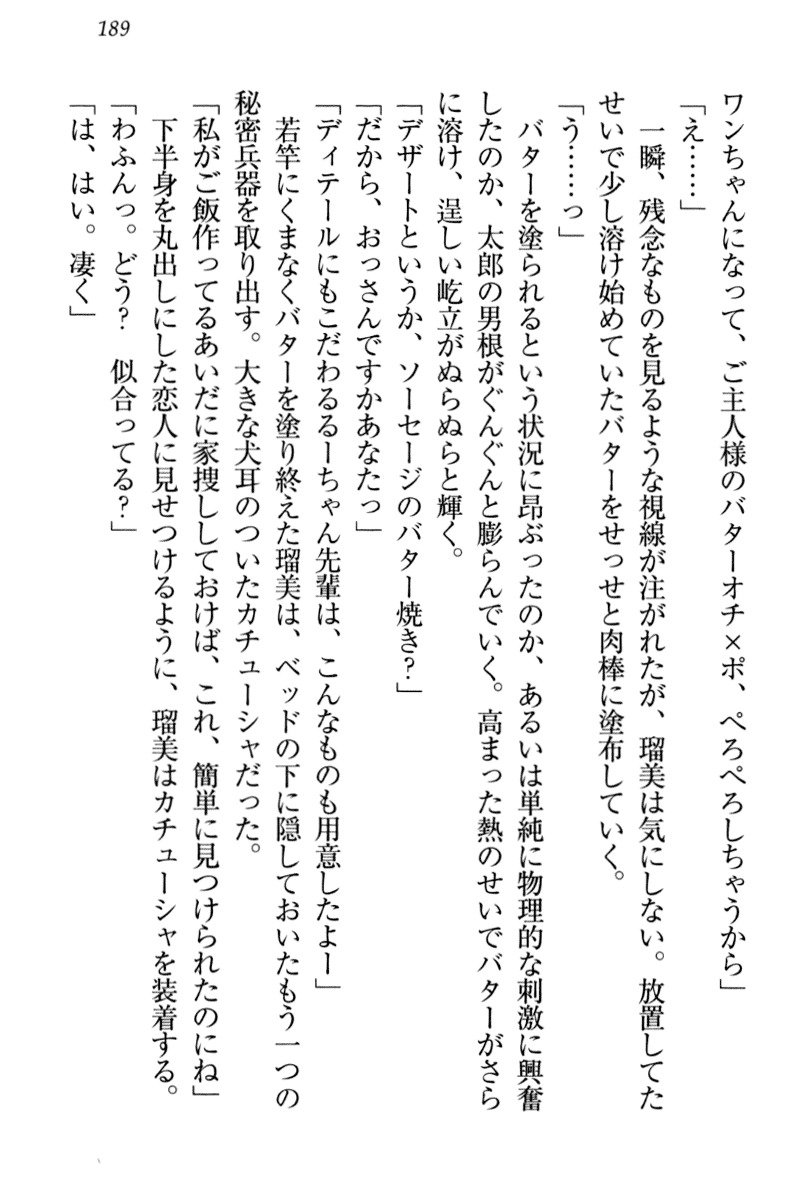 189
ワンちゃんになって、ご主人様のバターオチ×ポ、ぺろぺろしちゃうから」
「え……」
一瞬、残念なものを見るような視線が注がれたが、瑠美は気にしない。放置してた
せいで少し溶け始めていたバターをせっせと肉棒に塗布していく。
「う……っ」
バターを塗られるという状況に昂ぶったのか、あるいは単純に物理的な刺激に興奮
したのか、太郎の男根がぐんぐんと膨らんでいく。高まった熱のせいでバターがさら
に溶け、逞しい屹立がぬらぬらと輝く。
「デザートというか、ソーセージのバター焼き?」
「だから、おっさんですかあなたっ」
「ディテールにもこだわるるーちゃん先輩は、こんなものも用意したよー」
若竿にくまなくバターを塗り終えた瑠美は、ベッドの下に隠しておいたもう一つの
秘密兵器を取り出す。大きな犬耳のついたカチューシャだった。
「私がご飯作ってるあいだに家捜ししておけば、これ、簡単に見つけられたのにね」
下半身を丸出しにした恋人に見せつけるように、瑠美はカチューシャを装着する。
「わふんっ。どう?　似合ってる?」
「は、はい。凄く」